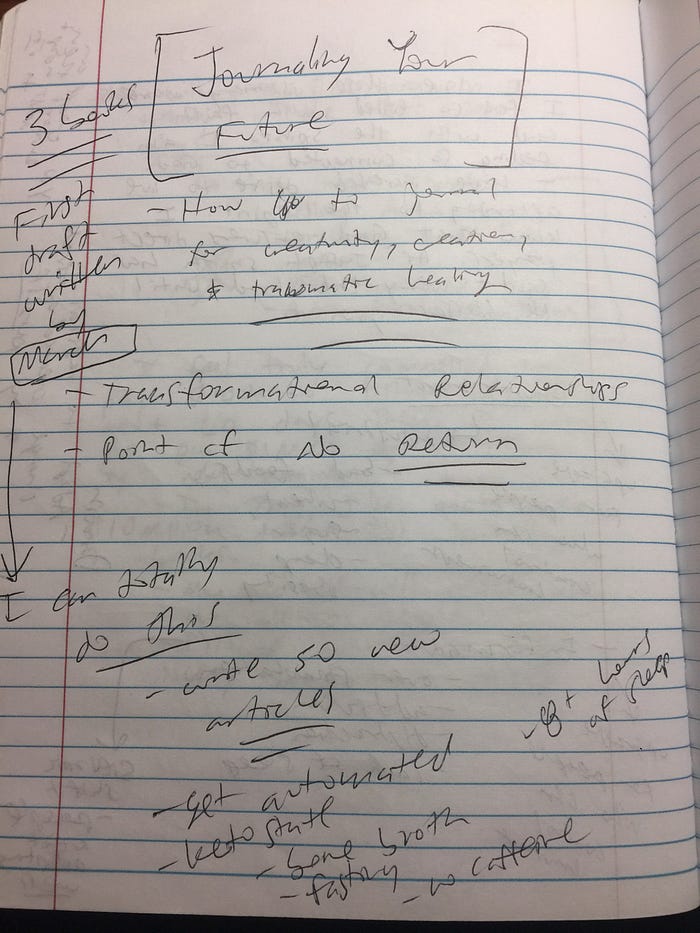 Journaling Your
Future
3 books
First
draft
written
by
March
- How to journal
for creativity, creation,
& traumatic healing
- Transformational Relationships
- Point of No Return
I can totally
do this
- write 50 new
articles
- 8+ hours
of sleep
- get automated
- keto
- bone broth
- fasting
- no caffeine